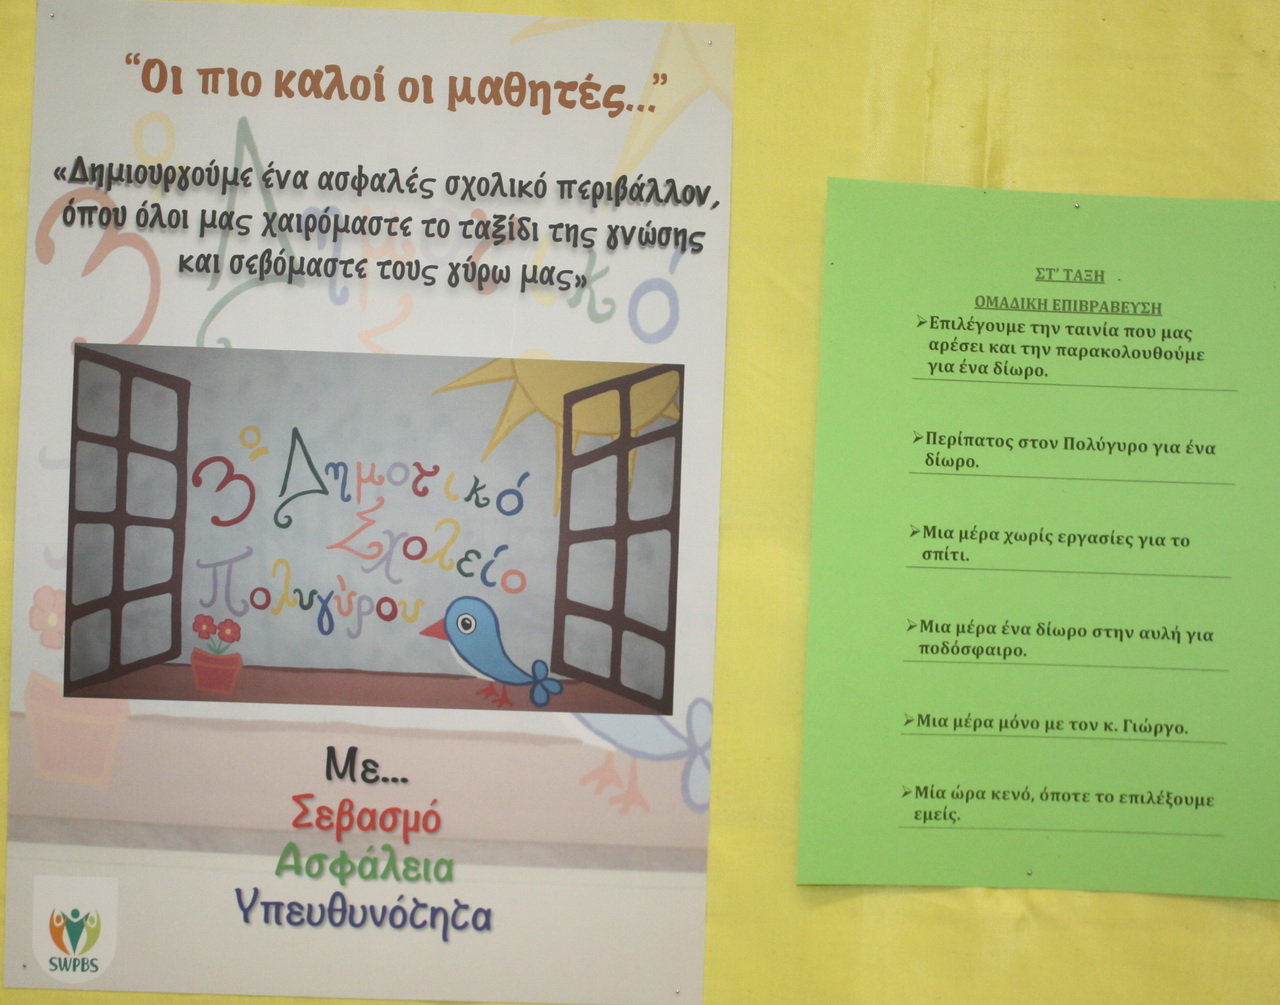 “Οι πιο καλοί οι μαθητές...”
«Δημιουργούμε ένα ασφαλές σχολικό περιβάλλον,
όπου όλοι μας χαιρόμαστε το ταξίδι της γνώσης
και σεβόμαστε τους γύρω μας»
3ο Δημοτικό
Σχολείο
Πολυγύρου
Με...
Σεβασμό
Ασφάλεια
Υπευθυνότητα
SWPBS
ΣΤ' ΤΑΞΗ
ΟΜΑΔΙΚΗ ΕΠΙΒΡΑΒΕΥΣΗ
➢Επιλέγουμε την ταινία που μας
αρέσει και την παρακολουθούμε
για ένα δίωρο.
➢Περίπατος στον Πολύγυρο για ένα
δίωρο.
➢Μια μέρα χωρίς εργασίες για το
σπίτι.
➢Μια μέρα ένα δίωρο στην αυλή για
ποδόσφαιρο.
➢Μια μέρα μόνο με τον κ. Γιώργο.
➢Μία ώρα κενό, όποτε το επιλέξουμε
εμείς.